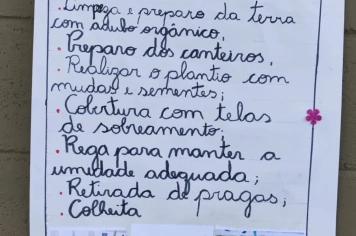 . Limpeza e preparo da terra
com adubo orgânico,
. Preparo dos canteiros,
. Realizar o plantio com
mudas e sementes;
. Cobertura com telas
de sobreamento;
. Rega para manter a
umidade adequada;
. Retirada de pragas;
. Colheita